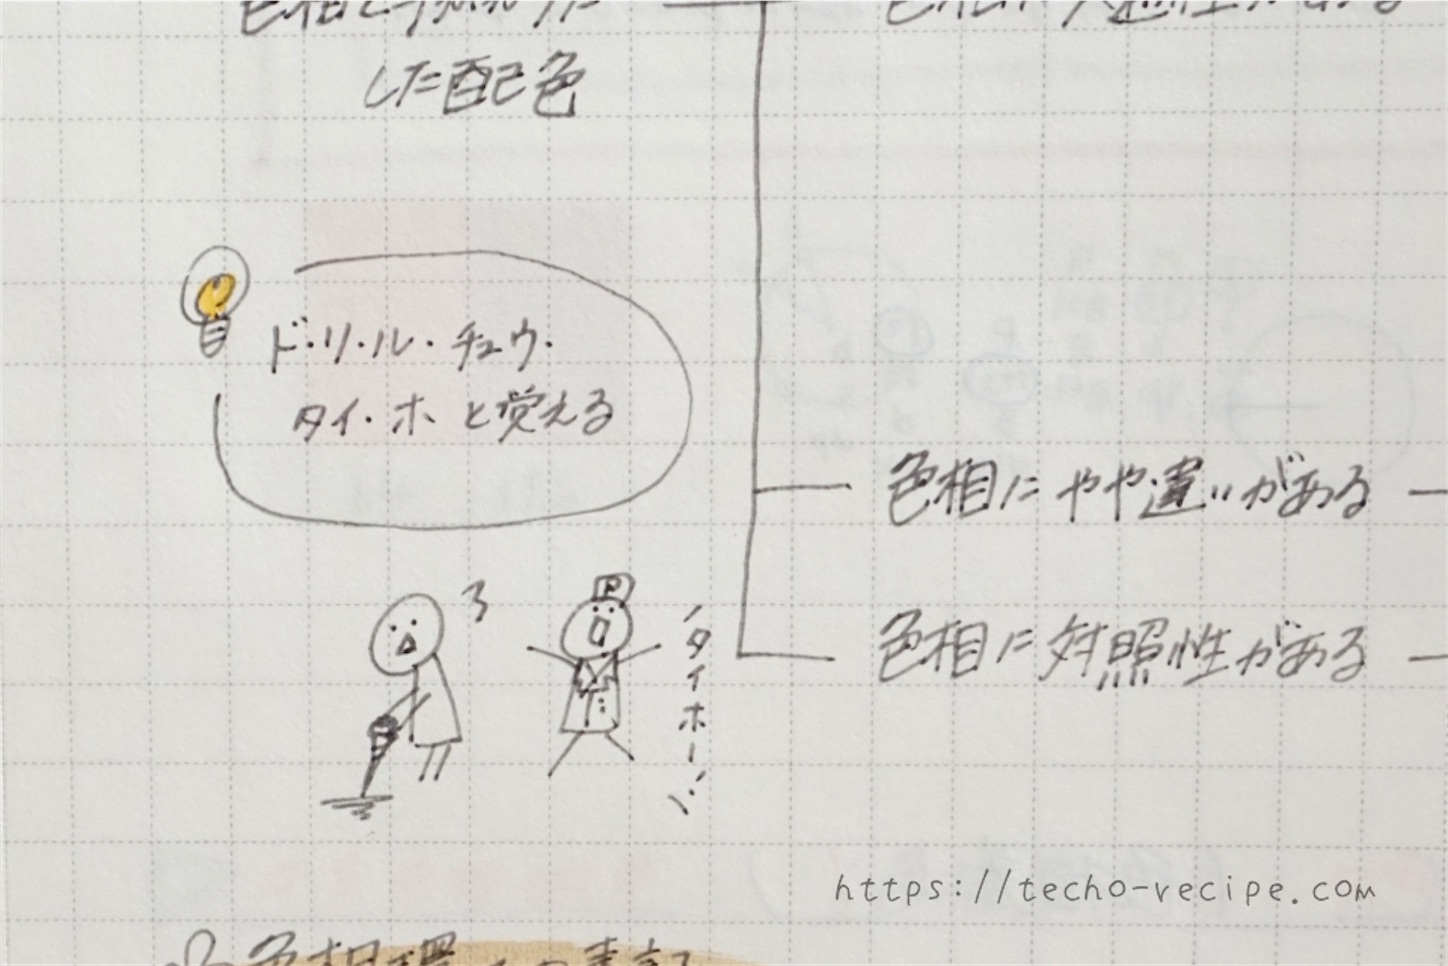 した配色
色相に共通性がある
ド・リ・ル・チュウ・
タイ・ホと覚える
色相にやや違いがある
色相に対照性がある
P
タイホー!!
https://techo-recipe.com